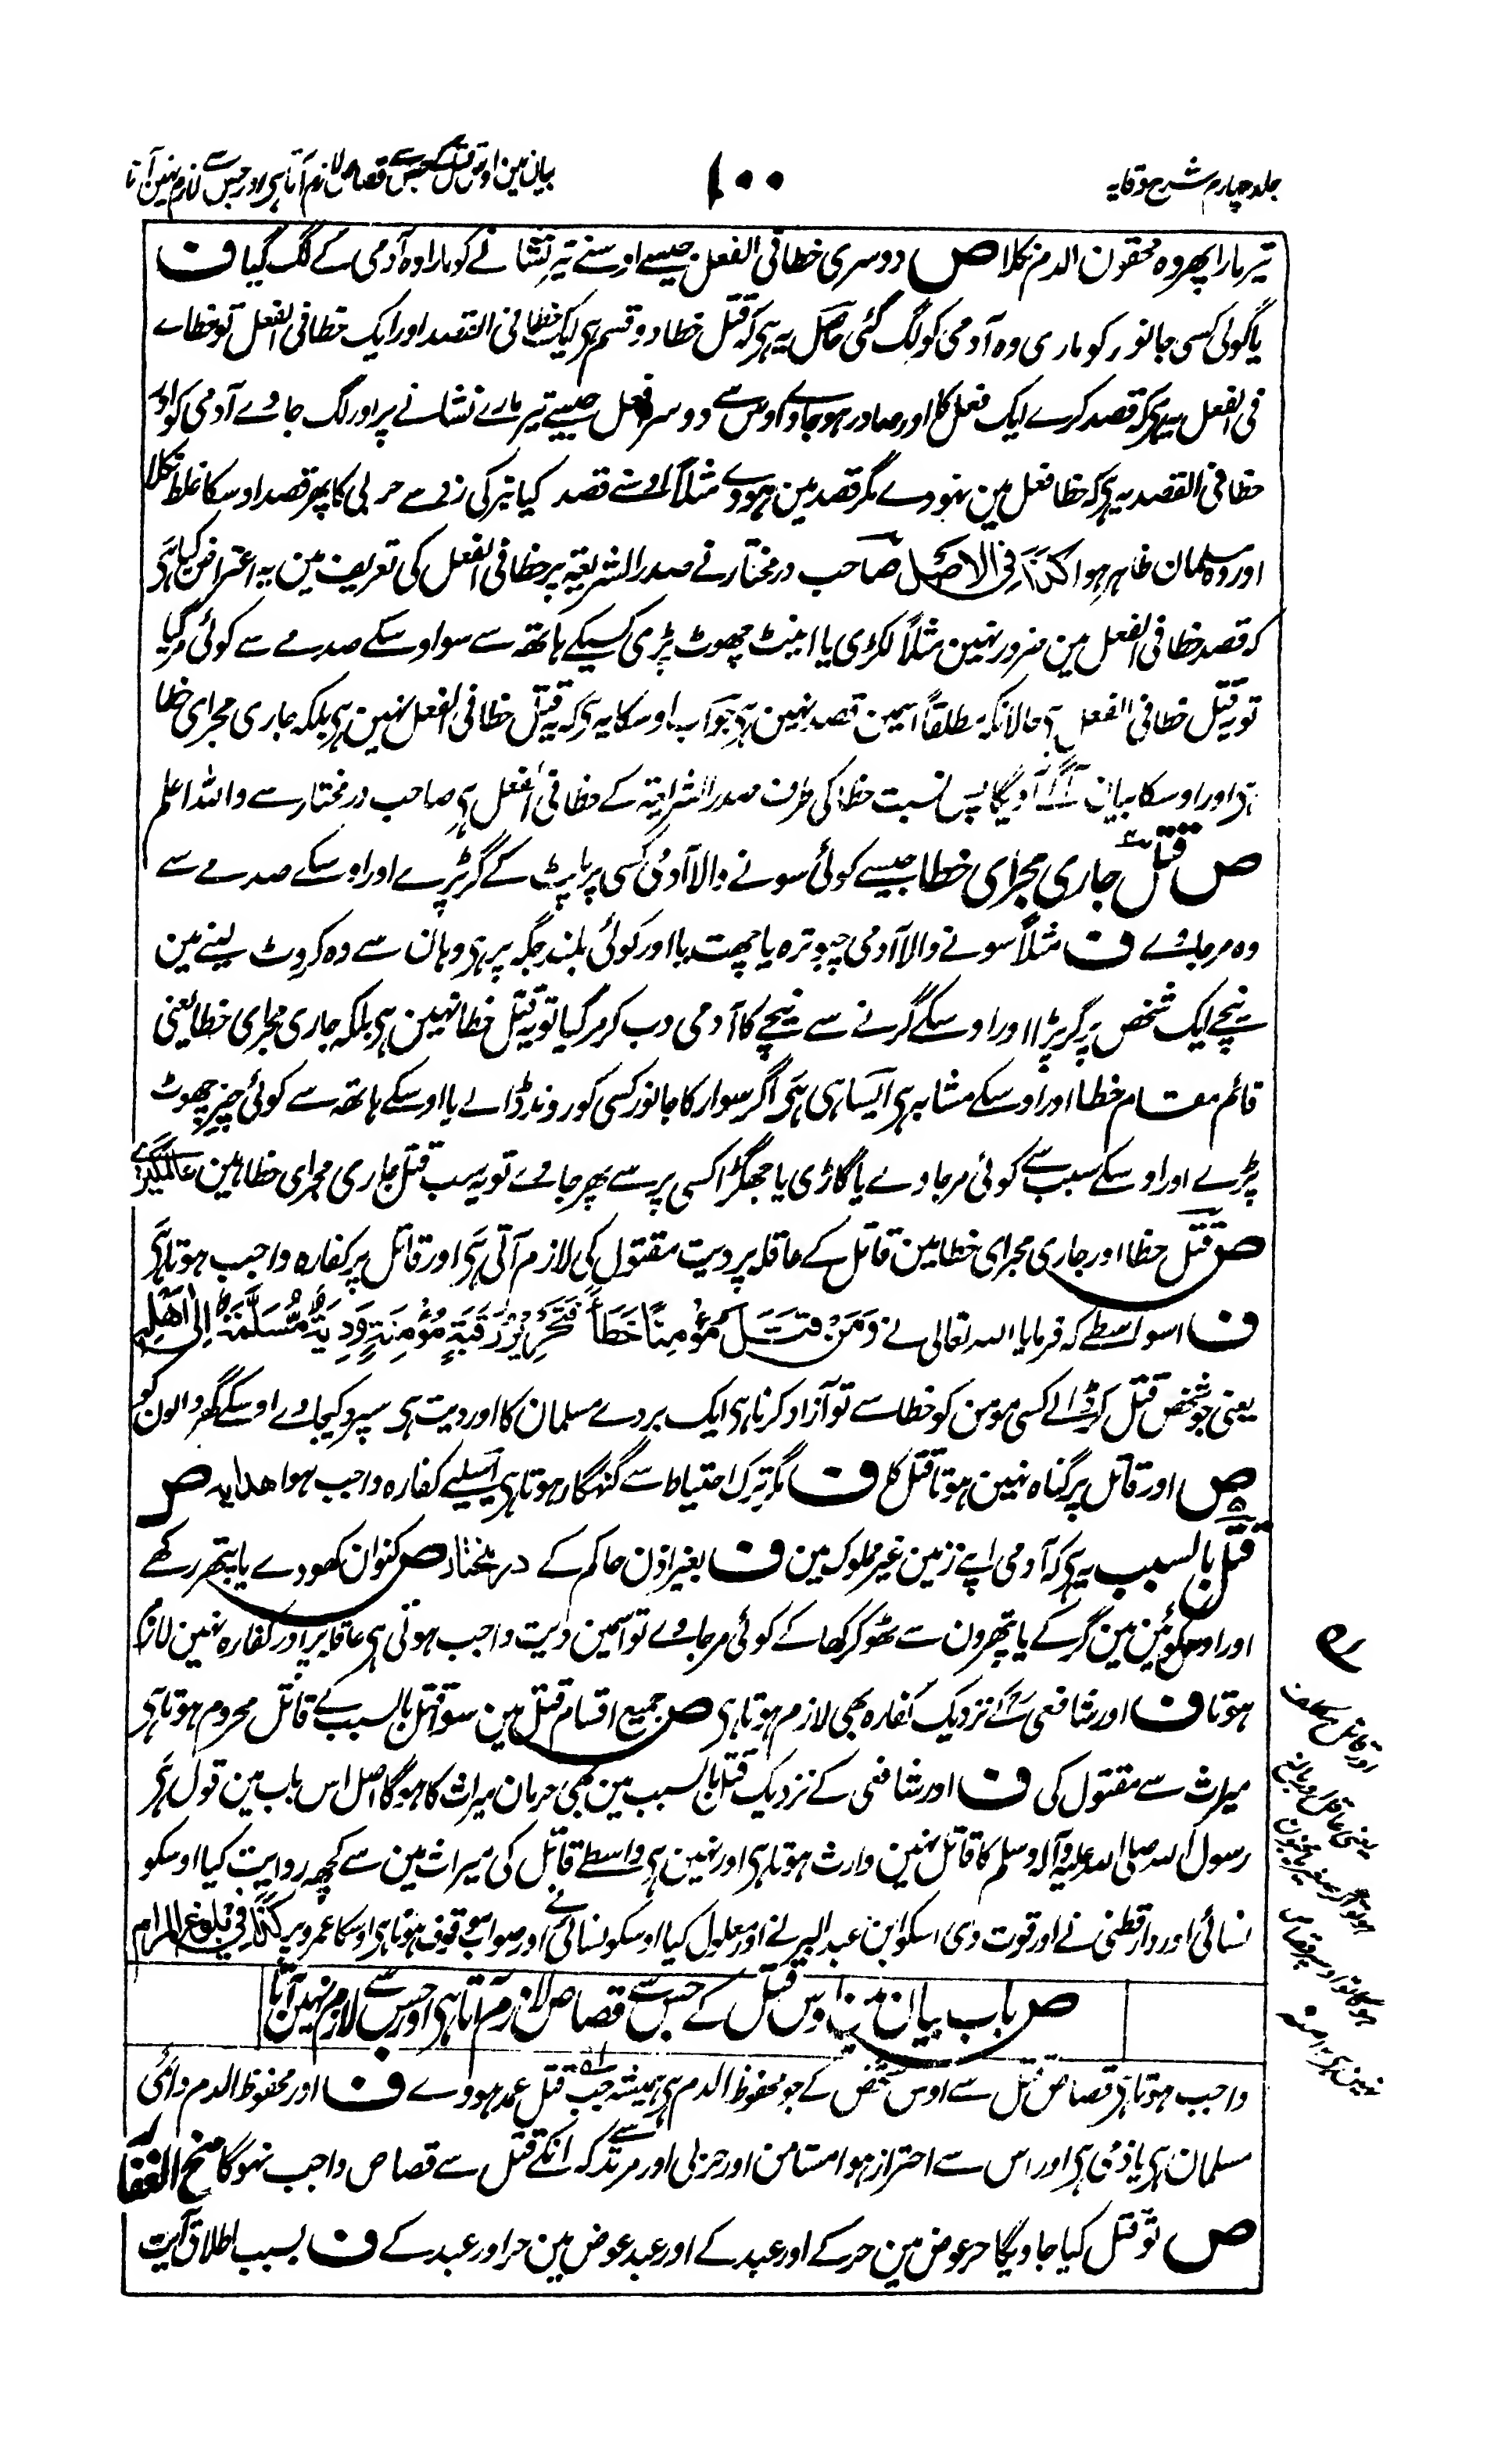 جلد چہارم شرح وقایہ
١٠٠
بیان مین اوس قتل کے جس سے قصاص لازم آتا ہی اور جس سے لازم نہین آتا
تیر مارا پھر وہ محقون الدم نکلا ص دوسری خطا فی الفعل جیسے اوسنے تیر نشانے کو مارا وہ آدمی کے لگ گیا ف
یا گولی کسی جانور کو ماری وہ آدمی کو لگ گئی حاصل یہ ہی کہ قتل خطا دو قسم ہی ایک خطا فی القصد اور ایک خطا فی الفعل تو خطاے
فی الفعل یہ ہی کہ قصد کرے ایک فعل کا اور صادر ہو جاوے اوس سے دوسرا فعل جیسے تیر مارے نشانے پر اور لگ جاوے آدمی کو اور
خطا فی القصد یہ ہی کہ خطا فعل مین نہووے مگر قصد مین ہووے مثلاً اوسنے قصد کیا تیر کی زد سے حربی کا پھر قصد اوسکا غلط نکلا
اور وہ مسلمان ظاہر ہوا کذا فی الاصل صاحب درمختار نے صدر الشریعۃ پر خطا فی الفعل کی تعریف مین یہ اعتراض کیا ہی
کہ قصد خطا فی الفعل مین ضرور نہین مثلاً لکڑی یا اینٹ چھوٹ پڑی کسیکے ہاتھ سے سو اوسکے صدمے سے کوئی مر گیا
تو یہ قتل خطا فی الفعل ہی حالانکہ مطلقاً اسمین قصد نہین ہی جواب اوسکا یہ ہی کہ یہ قتل خطا فی الفعل نہین ہی بلکہ جاری مجرای خطا
ہی اور اوسکا بیان آگے آویگا پس نسبت خطا کی طرف صدر الشریعۃ کے خطا فی الفعل ہی صاحب درمختار سے واللہ اعلم
ص قتل جاری مجرای خطا جیسے کوئی سونے والا آدمی کسی پر پلٹ کے گر پڑے اور اوسکے صدمے سے
وہ مر جاوے ف مثلاً سونے والا آدمی چبوترہ یا چھت یا اور کوئی بلند جگہ پر ہی وہان سے وہ کروٹ لینے مین
نیچے ایک شخص پر گر پڑا اور اوسکے گرنے سے نیچے کا آدمی دب کر مر گیا تو یہ قتل خطا نہین ہی بلکہ جاری مجرای خطا یعنی
قائم مقام خطا اور اوسکے مشابہ ہی ایسا ہی ہی اگر سوار کا جانور کسی کو روند ڈالے یا اوسکے ہاتھ سے کوئی چیز چھوٹ
پڑے اور اوسکے سبب سے کوئی مر جاوے یا گاڑی یا چھکڑا کسی پر سے پھر جاوے تو یہ سب قتل جاری مجرای خطا ہین عالمگیری
ص قتل خطا اور جاری مجرای خطا مین قاتل کے عاقلہ پر دیت مقتول کی لازم آتی ہی اور قاتل پر کفارہ واجب ہوتا ہی
ف اسواسطے کہ فرمایا اللہ تعالی نے وَمَنْ قَتَلَ مُؤْمِنًا خَطَأً فَتَحْرِيْرُ رَقَبَةٍ مُؤْمِنَةٍ وَدِيَةٌ مُسَلَّمَةٌ إِلٰى أَهْلِهٖ
یعنی جو شخص قتل کر ڈالے کسی مومن کو خطا سے تو آزاد کرنا ہی ایک بردے مسلمان کا اور دیت ہی سپرد کیجاوے اوسکے گھر والون کو
ص اور قاتل پر گناہ نہین ہوتا قتل کا ف مگر ترک احتیاط سے گنہگار ہوتا ہی اسلیے کفارہ واجب ہوا ھدایہ ص
قتل بالسبب یہ ہی کہ آدمی اپنے زمین غیر مملوک مین ف بغیر اذن حاکم کے درمختار ص کنوان کھودے یا پتھر رکھے
اور اوس کوئین مین گر کے یا پتھرون سے ٹھوکر کھا کے کوئی مر جاوے تو اسمین دیت واجب ہوتی ہی عاقلہ پر اور کفارہ نہین لازم
ہوتا ف اور شافعی رح کے نزدیک کفارہ بھی لازم ہوتا ہی ص جمیع اقسام قتل مین سوا قتل بالسبب کے قاتل محروم ہوتا ہی
میراث سے مقتول کی ف اور شافعی کے نزدیک قتل بالسبب مین بھی حرمان میراث کا ہوگا اصل اس باب مین قول ہی
رسول اللہ صلی اللہ علیہ وآلہ وسلم کا قاتل نہین وارث ہوتا ہی اور نہین ہی واسطے قاتل کی میراث مین سے کچھ روایت کیا اوسکو
نسائی اور دارقطنی نے اور قوت دی اسکو ابن عبد البر نے اور معلول کیا اوسکو نسائی نے اور صواب موقوف ہونا ہی اوسکا عمرو پر کذا فی بلوغ المرام
ص باب بیان مین اوس قتل کے جس سے قصاص لازم آتا ہی اور جس سے لازم نہین آتا
واجب ہوتا ہی قصاص قتل سے اوس شخص کے جو محفوظ الدم ہی ہمیشہ جب قتل عمد ہووے ف اور محفوظ الدم دائمی
مسلمان ہی یا ذمی ہی اور اس سے احتراز ہوا مستامن اور حربی اور مرتد سے کہ انکے قتل سے قصاص واجب نہوگا منح الغفار
ص تو قتل کیا جاویگا حر عوض مین حر کے اور عبد کے اور عبد عوض مین حر اور عبد کے ف بسبب اطلاق آیت
اور قاتل مکلف
یعنی عاقل و بالغ
ہو تو اگر صغیر یا مجنون
ہوگا تو اوسپر قصاص
نہین ہی ١٢ منہ